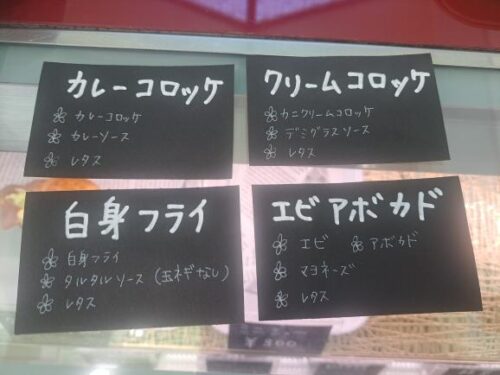 カレーコロッケ
カレーコロッケ
カレーソース
レタス
クリームコロッケ
カニクリームコロッケ
デミグラスソース
レタス
白身フライ
白身フライ
タルタルソース（玉ネギなし）
レタス
エビアボカド
エビ アボカド
マヨネーズ
レタス